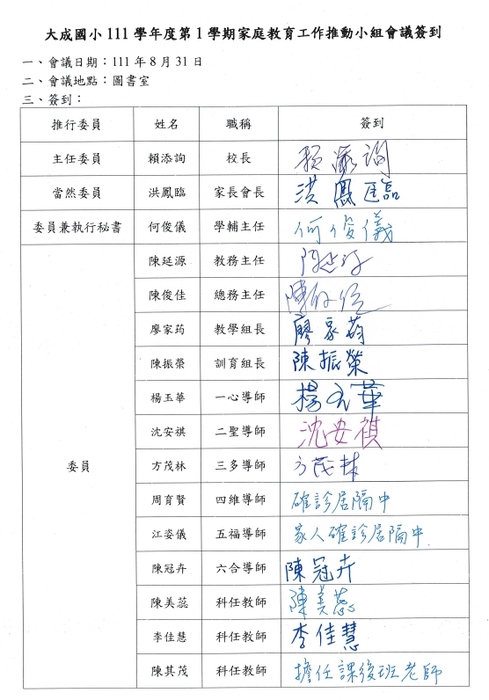 大成國小 111 學年度第 1 學期家庭教育工作推動小組會議簽到
一、會議日期：111 年 8 月 31 日
二、會議地點：圖書室
三、簽到：
推行委員 姓名 職稱 簽到
主任委員 賴添詢 校長 賴添詢
當然委員 洪鳳臨 家長會長 洪鳳臨
委員兼執行秘書 何俊儀 學輔主任 何俊儀
委員
陳延源 教務主任
陳俊佳 總務主任
廖家筠 教學組長 廖家筠
陳振榮 訓育組長 陳振榮
楊玉華 一心導師 楊玉華
沈安祺 二聖導師 沈安祺
方茂林 三多導師 方茂林
周育賢 四維導師 確診居隔中
江姿儀 五福導師 家人確診居隔中
陳冠卉 六合導師 陳冠卉
陳美蕊 科任教師 陳美蕊
李佳慧 科任教師 李佳慧
陳其茂 科任教師 擔任課後班老師